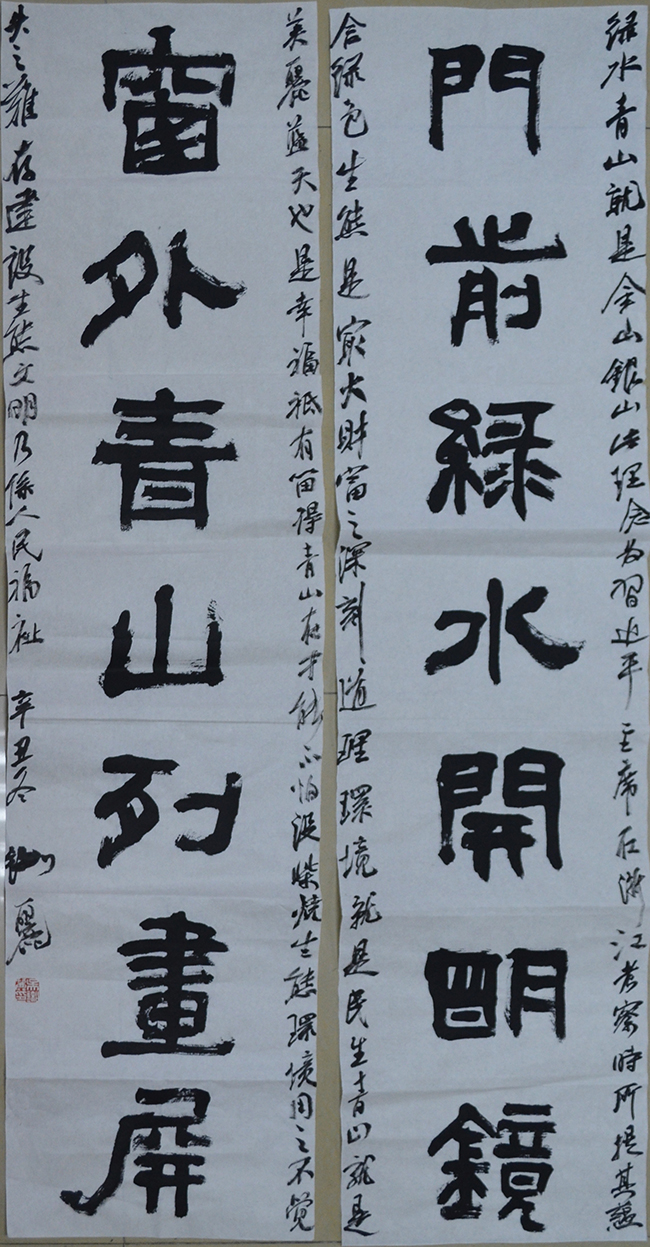 绿水青山就是金山银山此理念为習近平主席在浙江考察時所提其蕴
門前綠水開明鏡
含绿色生態是最大財富之深刻道理環境就是民生青山就是
美麗蓝天也是幸福祗有留得青山在才能不怕没柴燒生態環境用之不覺
窗外青山列畫屏
失之難存建設生態文明乃係人民福祉 辛丑冬 麗